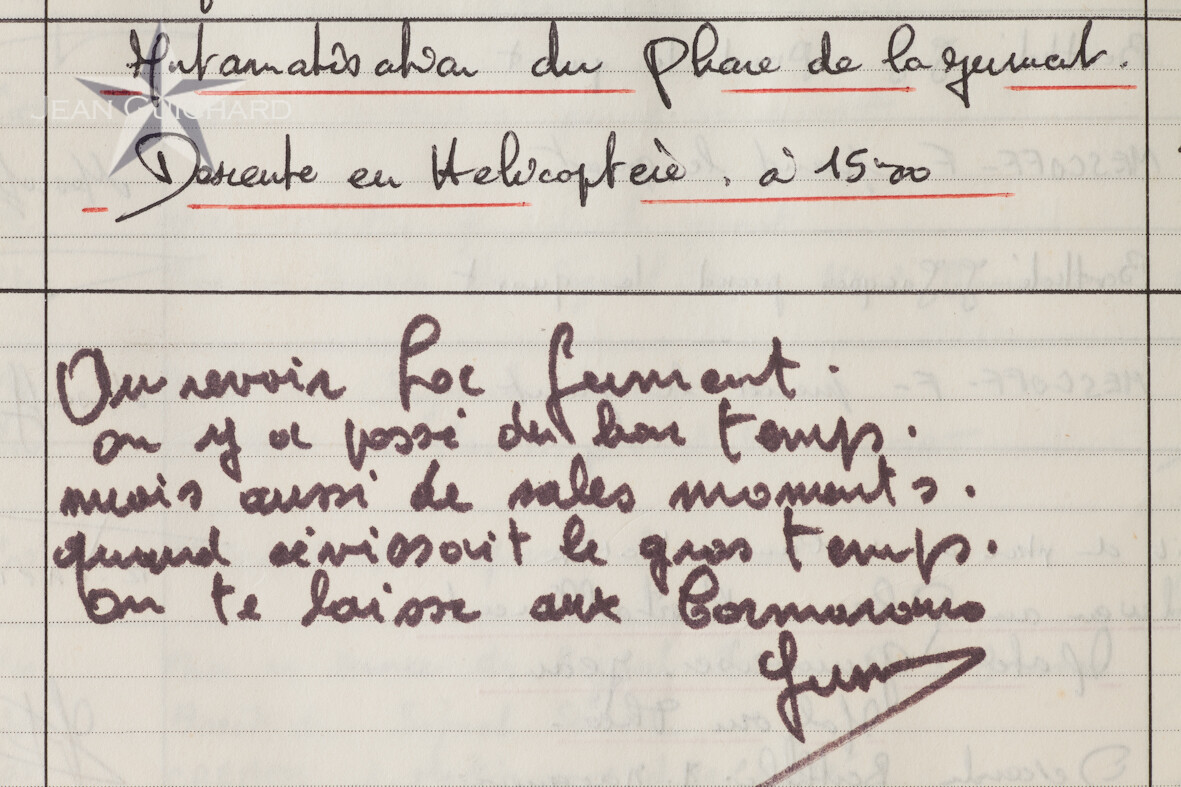 Automatisation du Phare de la Jument.
JEAN GUICHARD
Descente en Helicoptère. à 15h00
Au revoir Loc Jument.
on y a passé du bon temps.
mais aussi de sales moments.
quand sévissait le gros temps.
On te laisse aux Cormorans